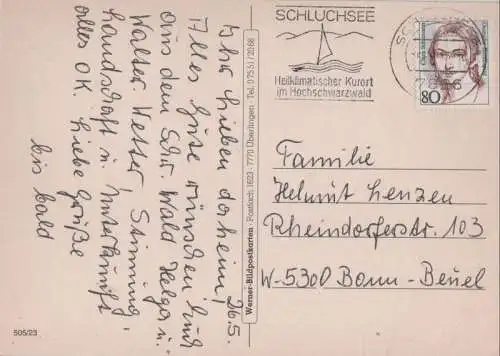 26.5.
Ihr Lieben daheim!
Alles Gute wünschen Euch
aus dem Schw. Wald Helga u.
Walter. Wetter, Stimmung,
Landschaft u. Unterkunft
alles OK. Liebe Grüße
bis bald
505/23
Werner-Bildpostkarten · Postfach 1623 · 7770 Überlingen · Tel. 07551/2068
SCHLUCHSEE
Heilklimatischer Kurort
im Hochschwarzwald
80
Familie
Helmut Lenzen
Rheindorferstr. 103
W-5300 Bonn-Beuel